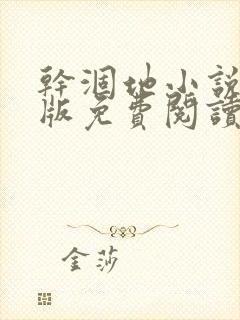 幹涸地小說
版免費閱讀
金莎